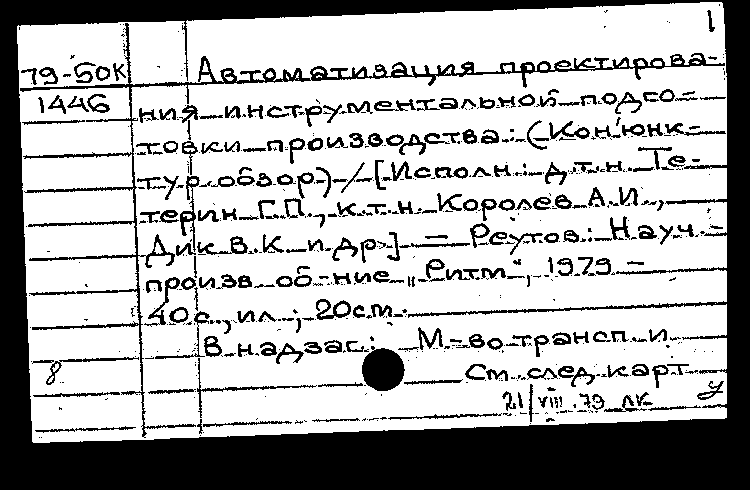 1
79-50К Автоматизация проектирова-
1446 ния инструментальной подго-
товки производства: (Конъюнк-
тур. обзор) / [Исполн.: д.т.н. Те-
терин Г.П., к.т.н. Королев А.И.,
Дик В.К. и др.] — Реутов: Науч.-
произв. об-ние „Ритм“, 1979 —
40с., ил.; 20см.
В надзаг.: М-во трансп. и
8 См. след. карт
21/VIII.79 ЛК